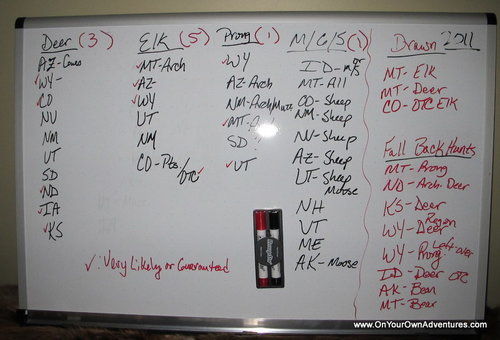 Deer (3)
AZ-Coues
WY-
CO
NV
NM
UT
SD
ND
IA
KS
Elk (5)
MT-Arch
AZ-
WY
UT
NM
CO-Pts/
OTC
Prong (1)
WY
AZ-Arch
NM-Arch/Muzz
MT-
SD
UT
M/G/S (1)
ID-m/s
or
MT-All
CO-Sheep
NM-Sheep
NV-Sheep
AZ-Sheep
UT-Sheep
Moose
NH
VT
ME
AK-Moose
Drawn 2011
MT-Elk
MT-Deer
CO-OTC Elk
Fall Back Hunts
MT-Prong
ND-Arch. Deer
KS-Deer
WY-Deer Region
WY-Prong Left over
ID-Deer OTC
AK-Bear
MT-Bear
✓: Very Likely or Guaranteed
www.OnYourOwnAdventures.com